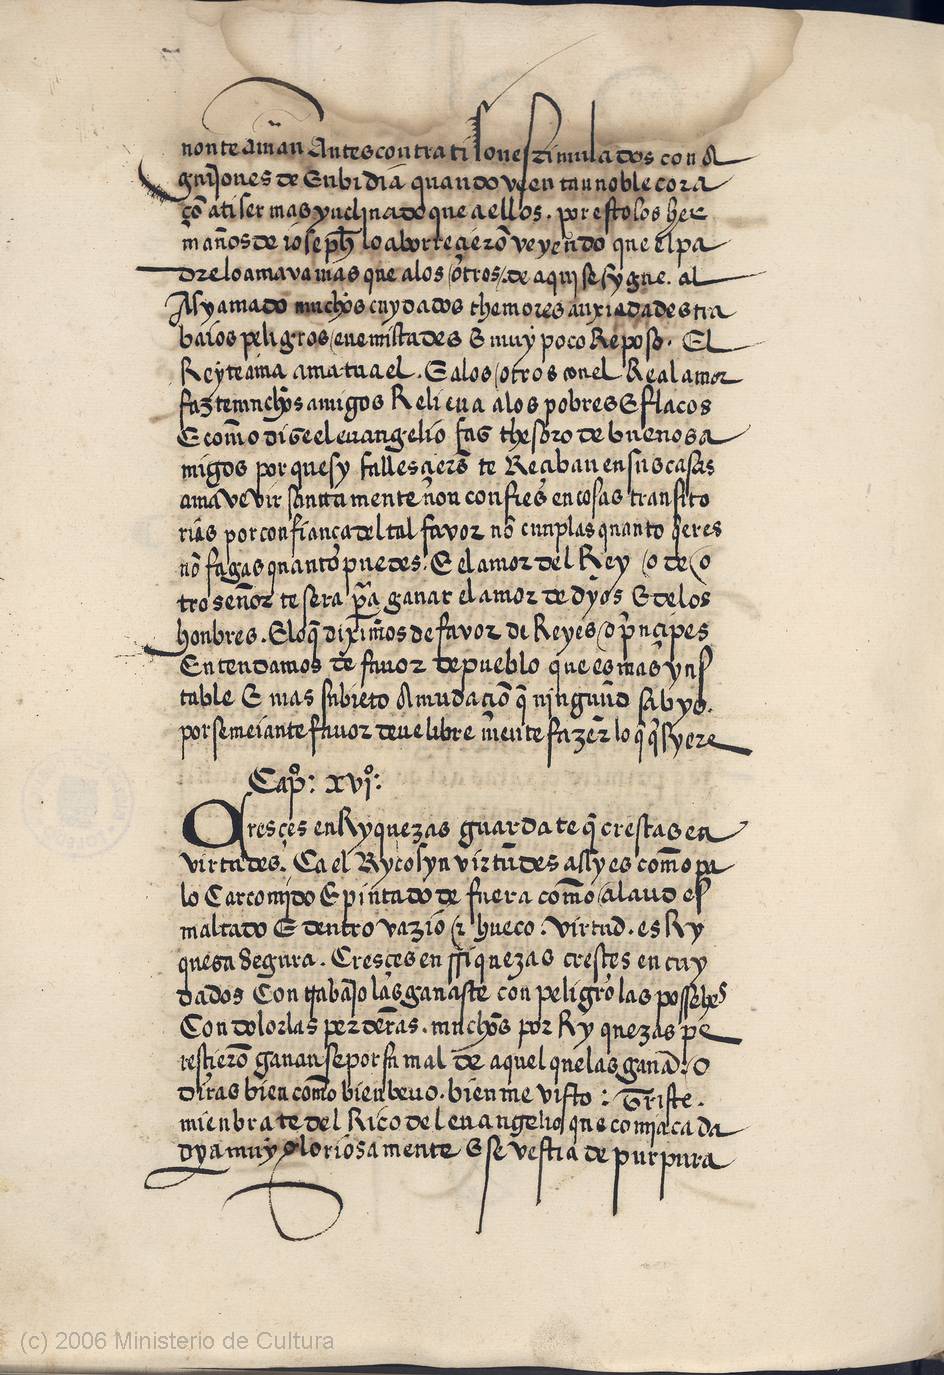 non te amã̃n Antes contra ti son estimulados con a
guijones de Enbidia quando veen tan noble cora
çõ a ti ser mas ynclinado que a ellos. por esto los her
manos de iosep̃h lo aborreçierõ veyendo que el pa
dre lo amava mas que a los otros. de aqui se sygue. al
Asy amado muchos cuydados themores anxiedades tra
baios peligros enemistades E muy poco Reposo. El
Rey te ama ama tu a el. E a los otros con el Real amor
fazte muchos amigos Relieua a los pobres E flacos
E com̃o dize el euangelio faz thesoro de buenos a
migos por que sy fallesçieres te Reçiban en sus casas
ama vevir santamente non confies en cosas transito
rias por confiança del tal favor nõ cunplas quanto q̃eres
nõ fagas quanto puedes. E el amor del Rey o de o
tro señor te sera p̃a ganar el amor de dyos E de los
honbres. E lo q̃ diximos de favor de Reyes o p̃nçipes
Entendamos de favor de pueblo que es mas yns
table E mas subieto A mudaçiõ q̃ ningund sabyo.
por semeiante favor deue libre mẽnte fazer lo q̃ q̃syere
Capº: xvjº:
O cresçes en Ryquezas guardate q̃ crescas en
virtudes. Ca el Ryco syn virtudes assy es com̃o pa
lo Carcomido E pintado de fuera com̃o alaud es
maltado E dentro vazio & hueco. virtud. es Ry
quesa segura. Cresçes en rriquezas cresçes en cuy
dados Con trabajo las ganaste con peligro las possehes
Con dolor las perderas. muchos por Ryquezas pe
resçierõ ganan se por su mal de aquel que las gana. O
diras bien com̃o bien beuo. bien me visto: Triste.
mienbrate del Rico del euangelio que comja cada
dya muy gloriosamente E se vestia de purpura
(c) 2006 Ministerio de Cultura